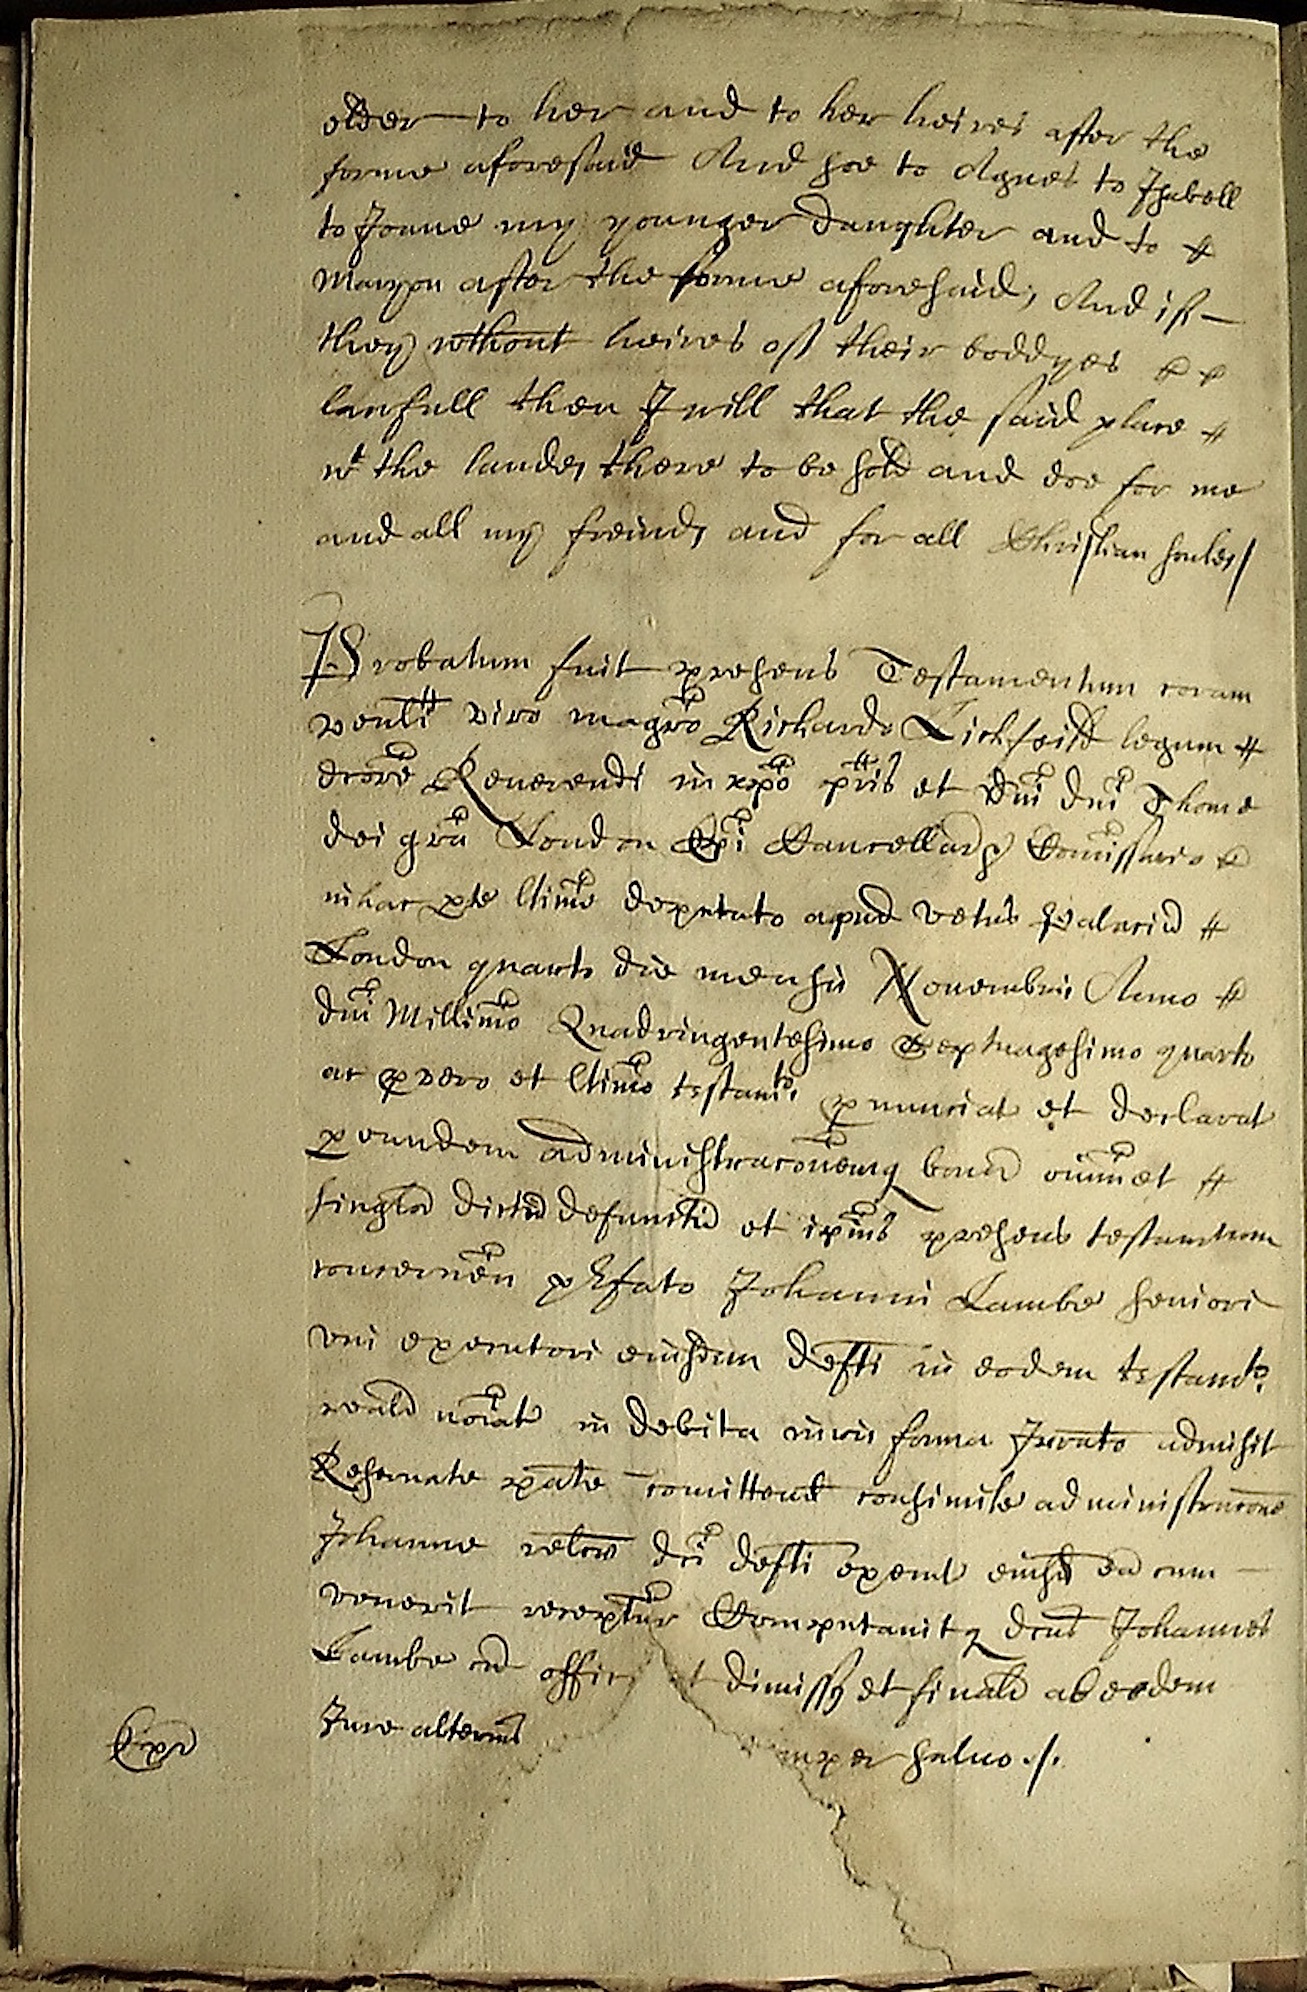 older to her and to her heires after the
forme aforesaid And soe to Agnes to Isabell
to Joane my younger daughter and to
Maryon after the forme aforesaid, And if
they wthout heires of their boddyes
lawfull then I will that the said place
wt the landes there to be sold and doe for me
and all my freindes and for all Christian soules /
Probatum fuit presens Testamentum coram
venli viro magro Richardo Lichfeild legum
dcore Reverendi in xpo pris et dni dni Thome
dei gra London Epi Cancellar Comissario
in hac pte ltime deputato apud vetus Palaciu
London quarto die mensis Novembris Anno
dni Millimo Quadringentesimo Septuagesimo quarto
ac p vero et ltimo testamto pnunciat et declarat
p eundem administraconemq bonor oium et
singlor dictu defunctu et ipius presens testamentum
concernen prefato Johanni Lambe seniori
vni executori eiusdem defti in eodem testamto
noiat in debita iuris forma Jurato admisit
Reservate ptate comittend consimile administracone
Johanne relcw dci defti execut eiusd cum
venerit receptur Computavitq dcus Johannes
Lambe offic et dimiss et finali ab eodem
Jure alterius mper salvo ./.
Exr